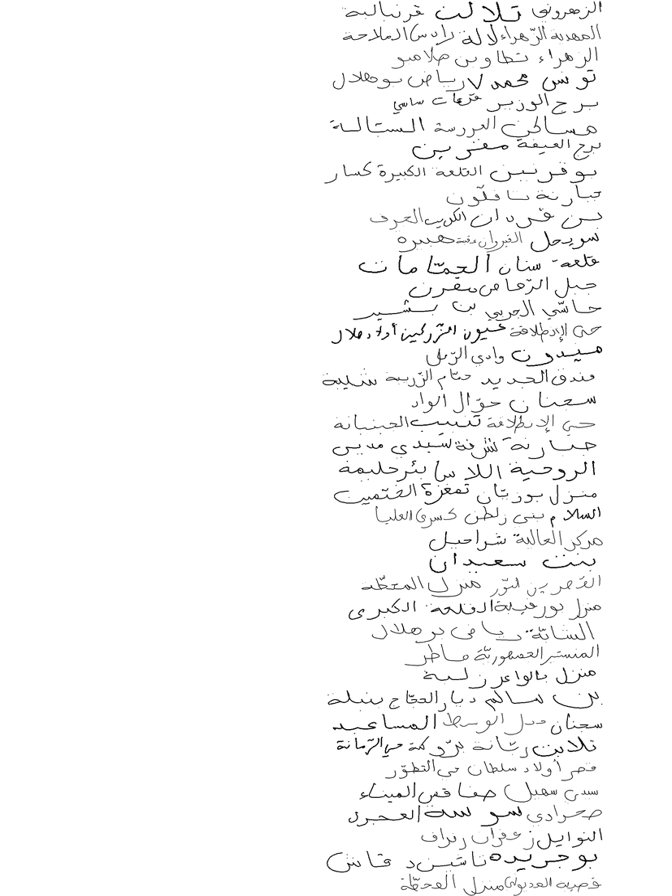 الزهروني تلالت قرنبالية
المهدية الزهراء لالة رادس الملاحة
الزهراء تطاوين صلامبو
تونس محمد٧ رياض بوهلال
برج الوزير قرعات ساسي
مساكن المدرسة الستالة
برج العيفة مقرين
بوفرنين القلعة الكبيرة كسار
خبارنة تافلون
بن قردان الكريب الجرف
نسويحل القيروان هبيرة
قلعة سنان الحمّامات
جبل الرصاص مقرن
حاسي الجربي بن بشير
حي الإنطلاقة عيون الزركين أولاد هلال
ميدون وادي الرمل
فندق الجديد حمّام الزريبة شيبة
سجنان حوّال الواد
حي الإنطلاقة تنبيب الجبنيانة
خبارنة شرفة سيدي مدين
الروحية اللاس بئر حليمة
منزل بوزيّان تمغزة الختمين
السلام بني زلطن كسرى العليا
مركز العالية شراحيل
بنت سعيدان
القصرين لتوّر منزل المحطّة
منزل بورقيبة القلعة الكبرى
الشابّة رياض بوهلال
المنستير الجمهوريّة ماطر
منزل بالواعر زلبة
بن سالم ديار الحجّاج بنبلة
سجنان جدل الوسط المساعيد
تلابت رتانة برّدكمة حي الرمانة
قصر أولاد سلطان حي التطوّر
سيدي سهيل صفاقس الميناء
صحرادي سوسة
النوايل زعفران رفراف
بوجريدة تاشين دقاش
قصيبة المديوني منزل المحطّة